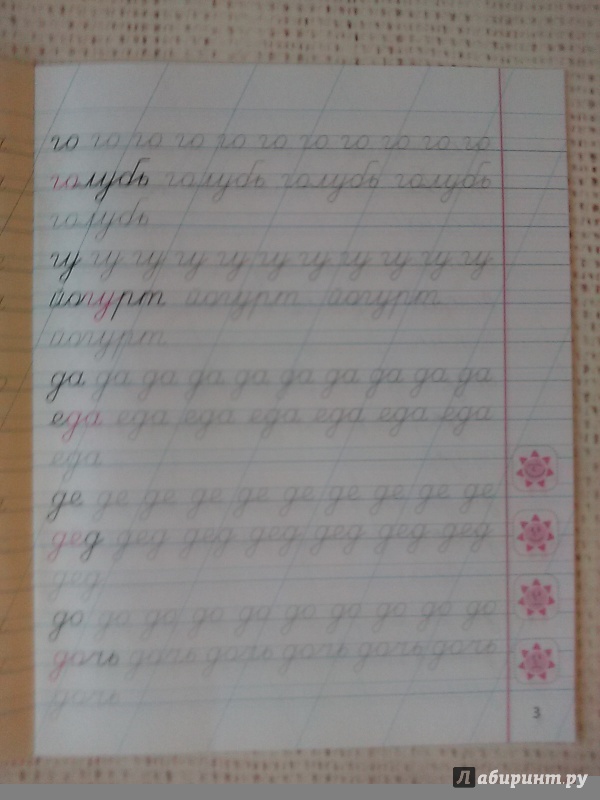 го го го го го го го го го го го
голубь голубь голубь голубь
голубь
гу гу гу гу гу гу гу гу гу гу гу
йогурт йогурт йогурт
йогурт
да да да да да да да да да да
еда еда еда еда еда еда еда
еда
де де де де де де де де де де
дед дед дед дед дед дед дед
дед
до до до до до до до до до до
дочь дочь дочь дочь дочь дочь
дочь
3
Лабиринт.ру